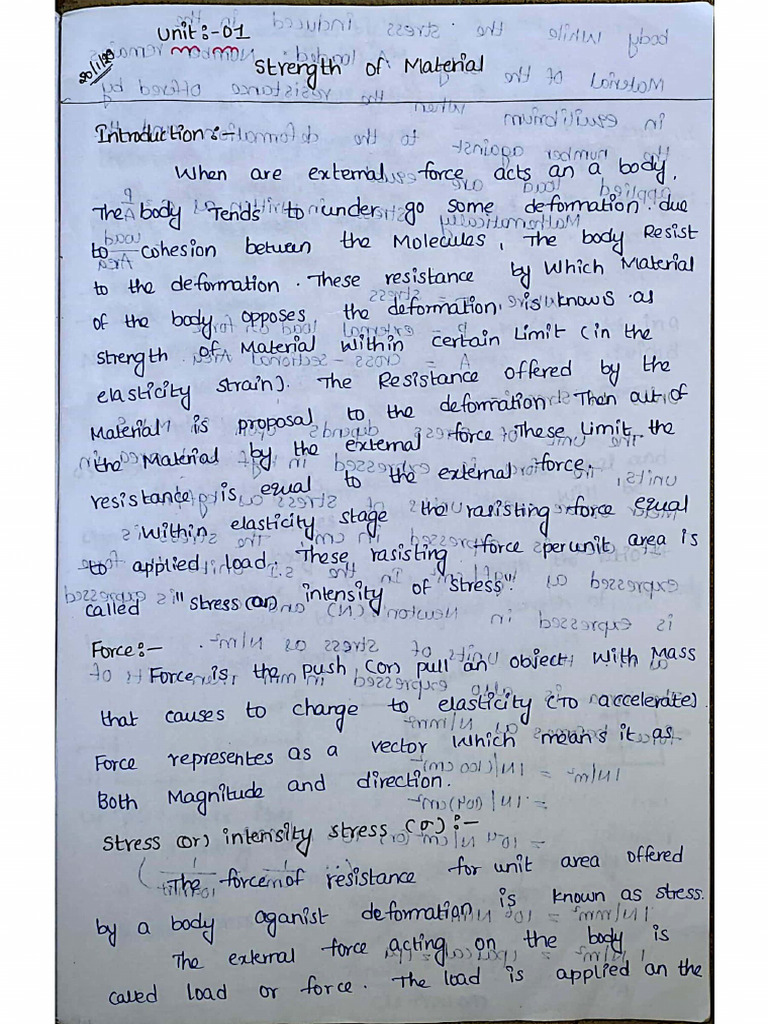 Unit:-01
20/1/23
Strength of Material
Introduction:-
When are external force acts an a body.
The body Tends to under go some deformation due
to cohesion between the Molecules, The body Resist
to the deformation. These resistance by Which Material
of the body opposes the deformation, is knows as
strength of Material within certain Limit (in the
elasticity strain). The Resistance offered by the
Material is proposal to the deformation Then out of
the Material by the external force These Limit, the
resistance is equal to the external force.
Within elasticity stage the rasisting force equal
to applied load. These rasisting force per unit area is
called "stress (or) intensity of stress".
Force:-
Force is, the push (or) pull an object with Mass
that causes to change to elasticity (To accelerate)
Force representes as a vector Which means it as
Both Magnitude and direction.
Stress (or) intensity stress (σ):-
The force of resistance for unit area offered
by a body aganist deformation is known as stress.
The external force acting on the body is
called load or force. The load is applied an the